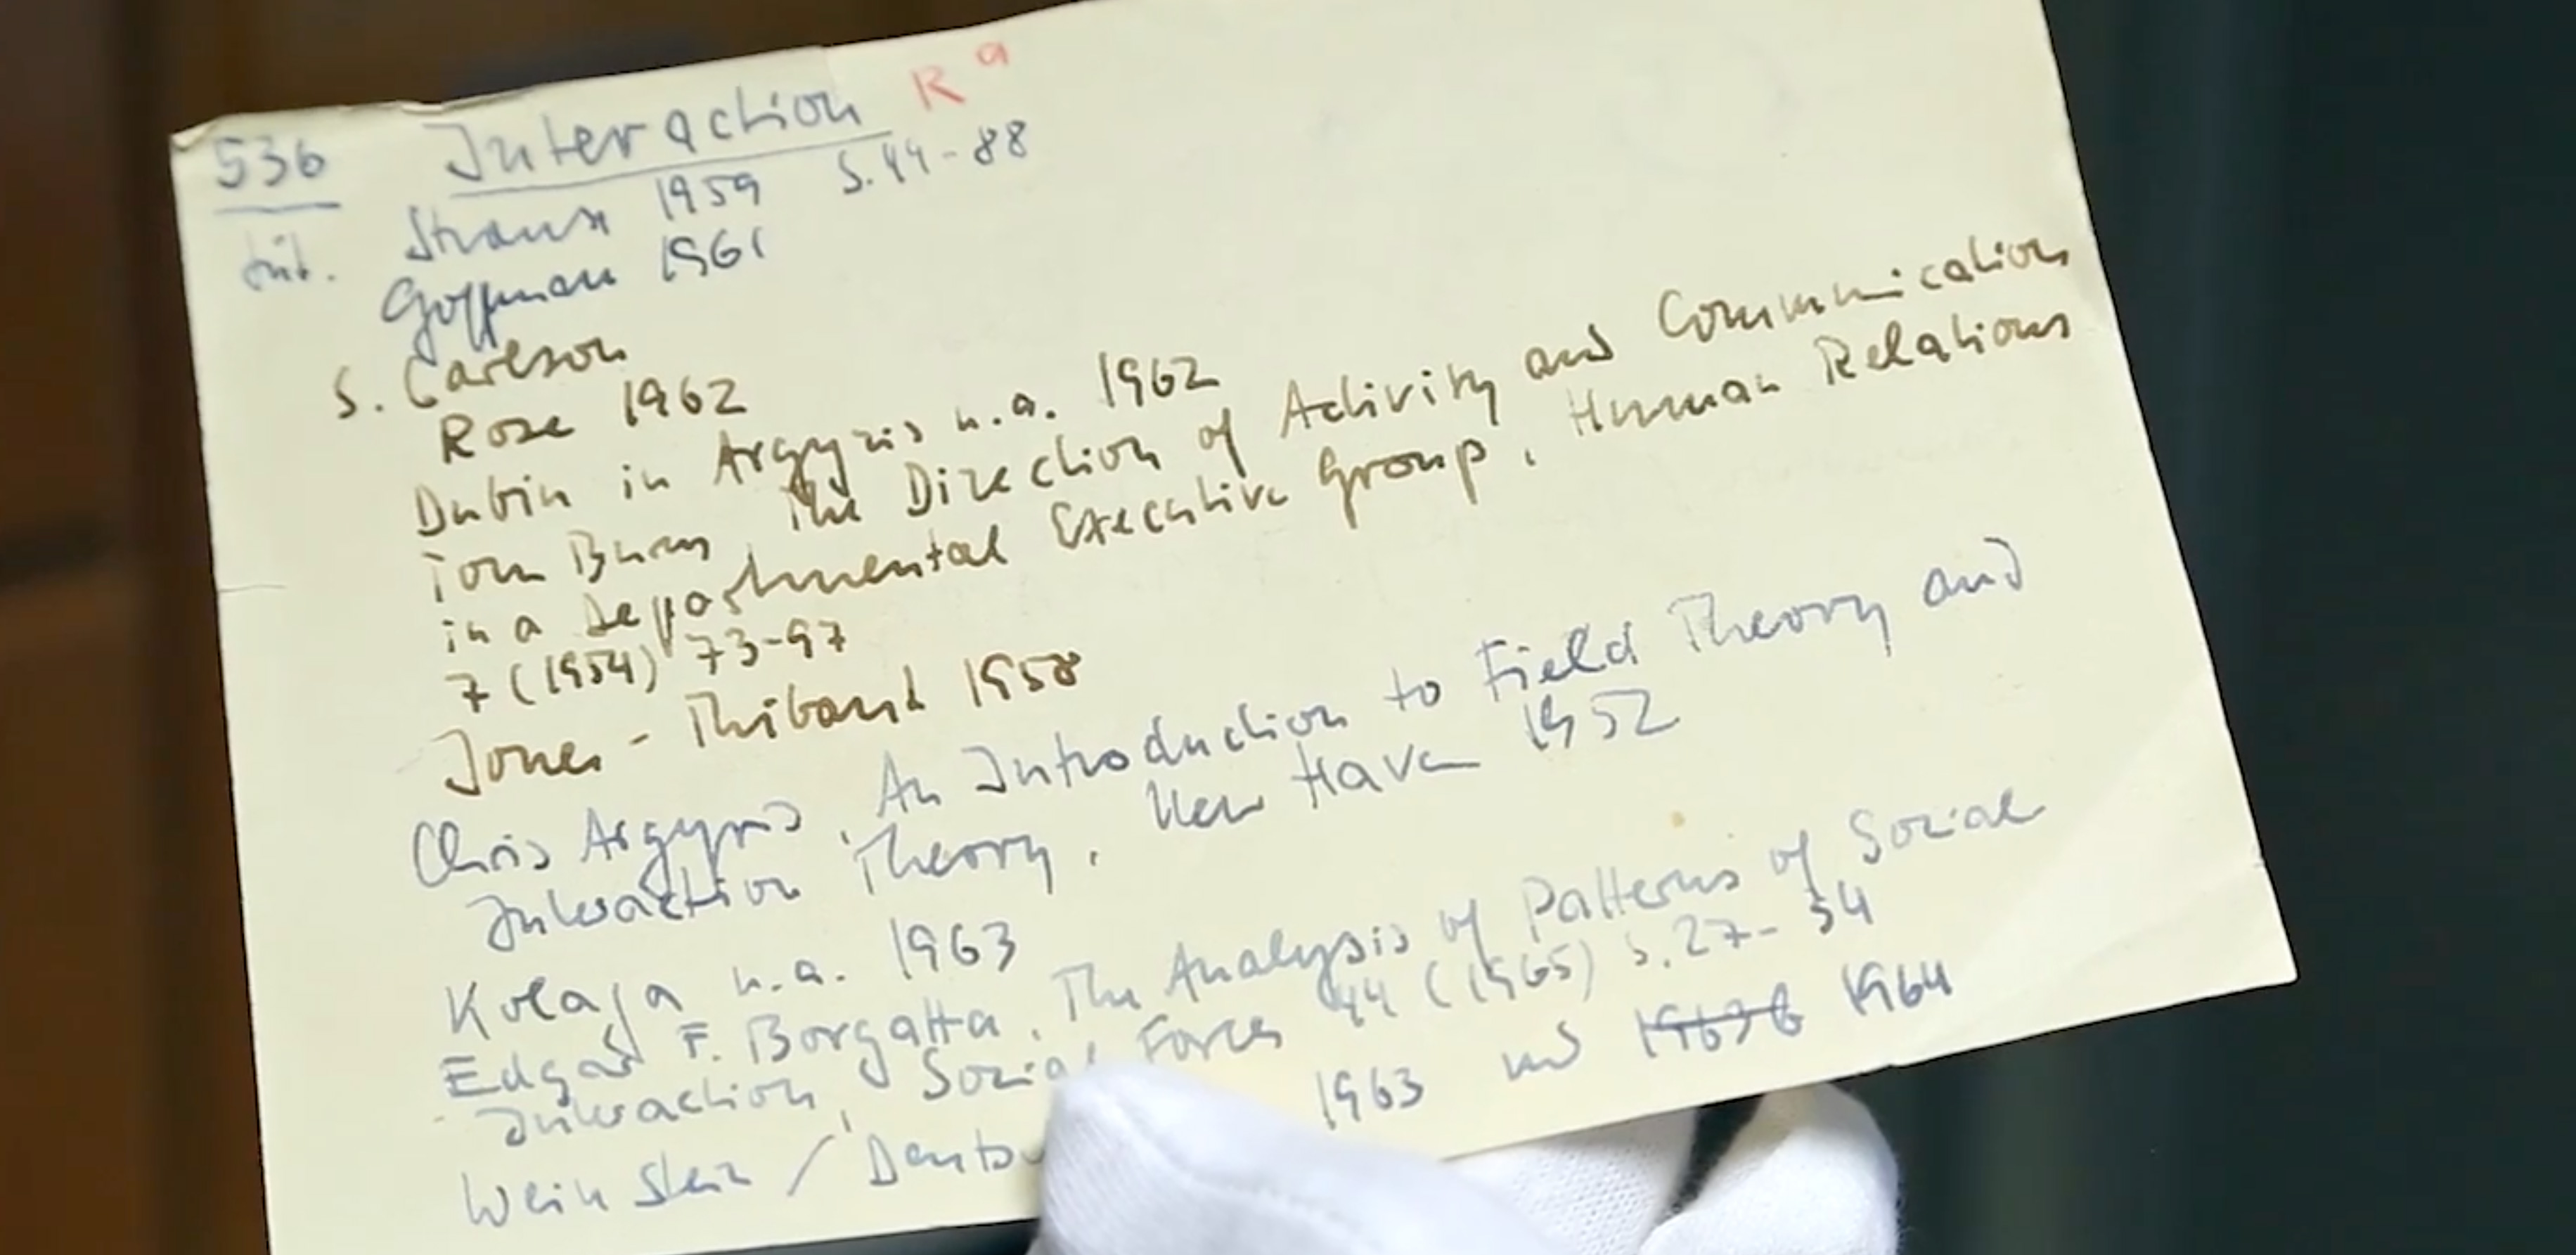 536 Interaction R 9
Lit. Strauss 1959 S. 44-88
Goffman 1961
S. Carlson
Rose 1962
Dubin in Argyris u.a. 1962
Tom Burns, The Direction of Activity and Communication
in a Departmental Executive Group, Human Relations
7 (1954) 73-97
Jones - Thibaut 1958
Chris Argyris, An Introduction to Field Theory and
Interaction Theory, New Haven 1952
Kolaja u.a. 1963
Edgar F. Borgatta, The Analysis of Patterns of Social
Interaction, Social Forces 44 (1965) S. 27-34
Weinstein / 1963 und 1964